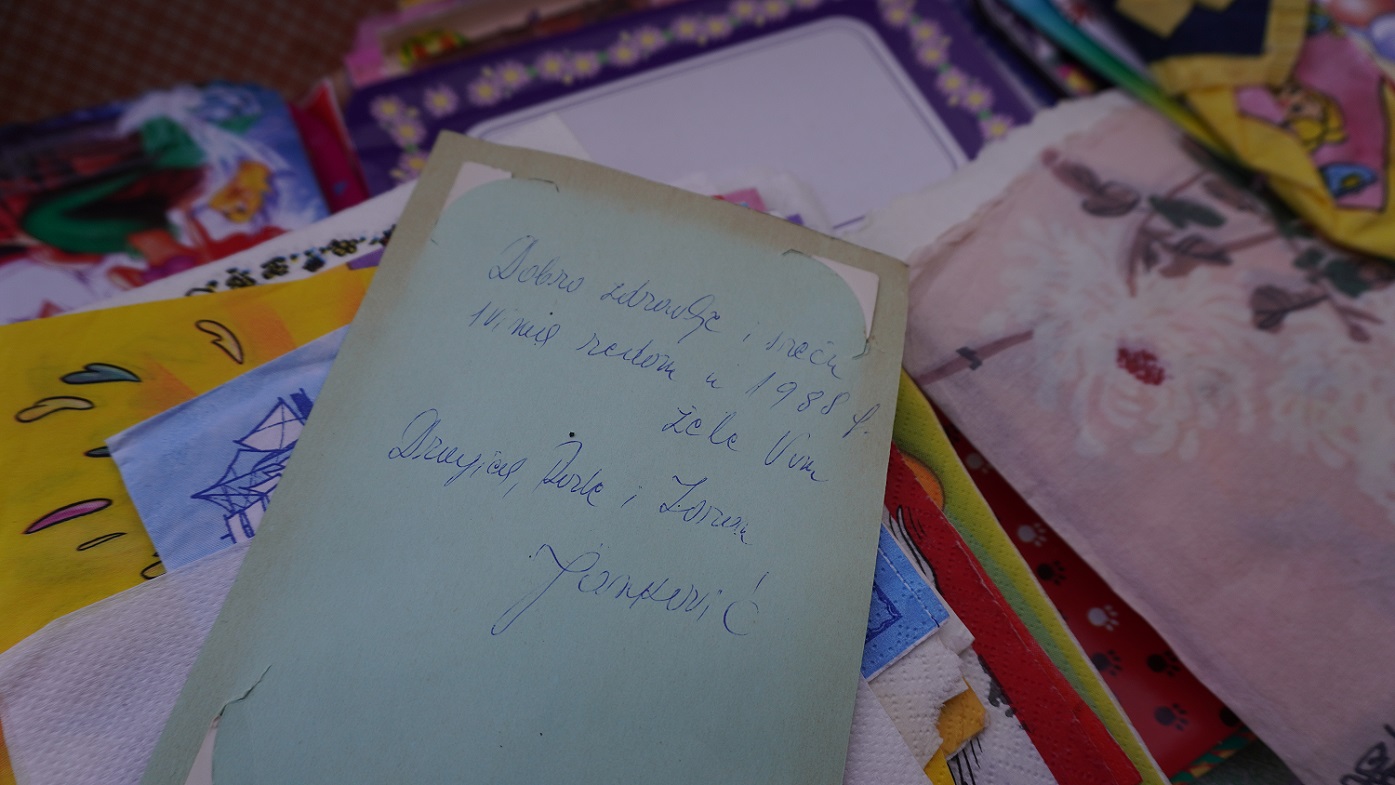 Dobro zdravlje i sreću
svima redom u 1988 g.
žele Vam
Dragica, Rade i Zoran
Janković